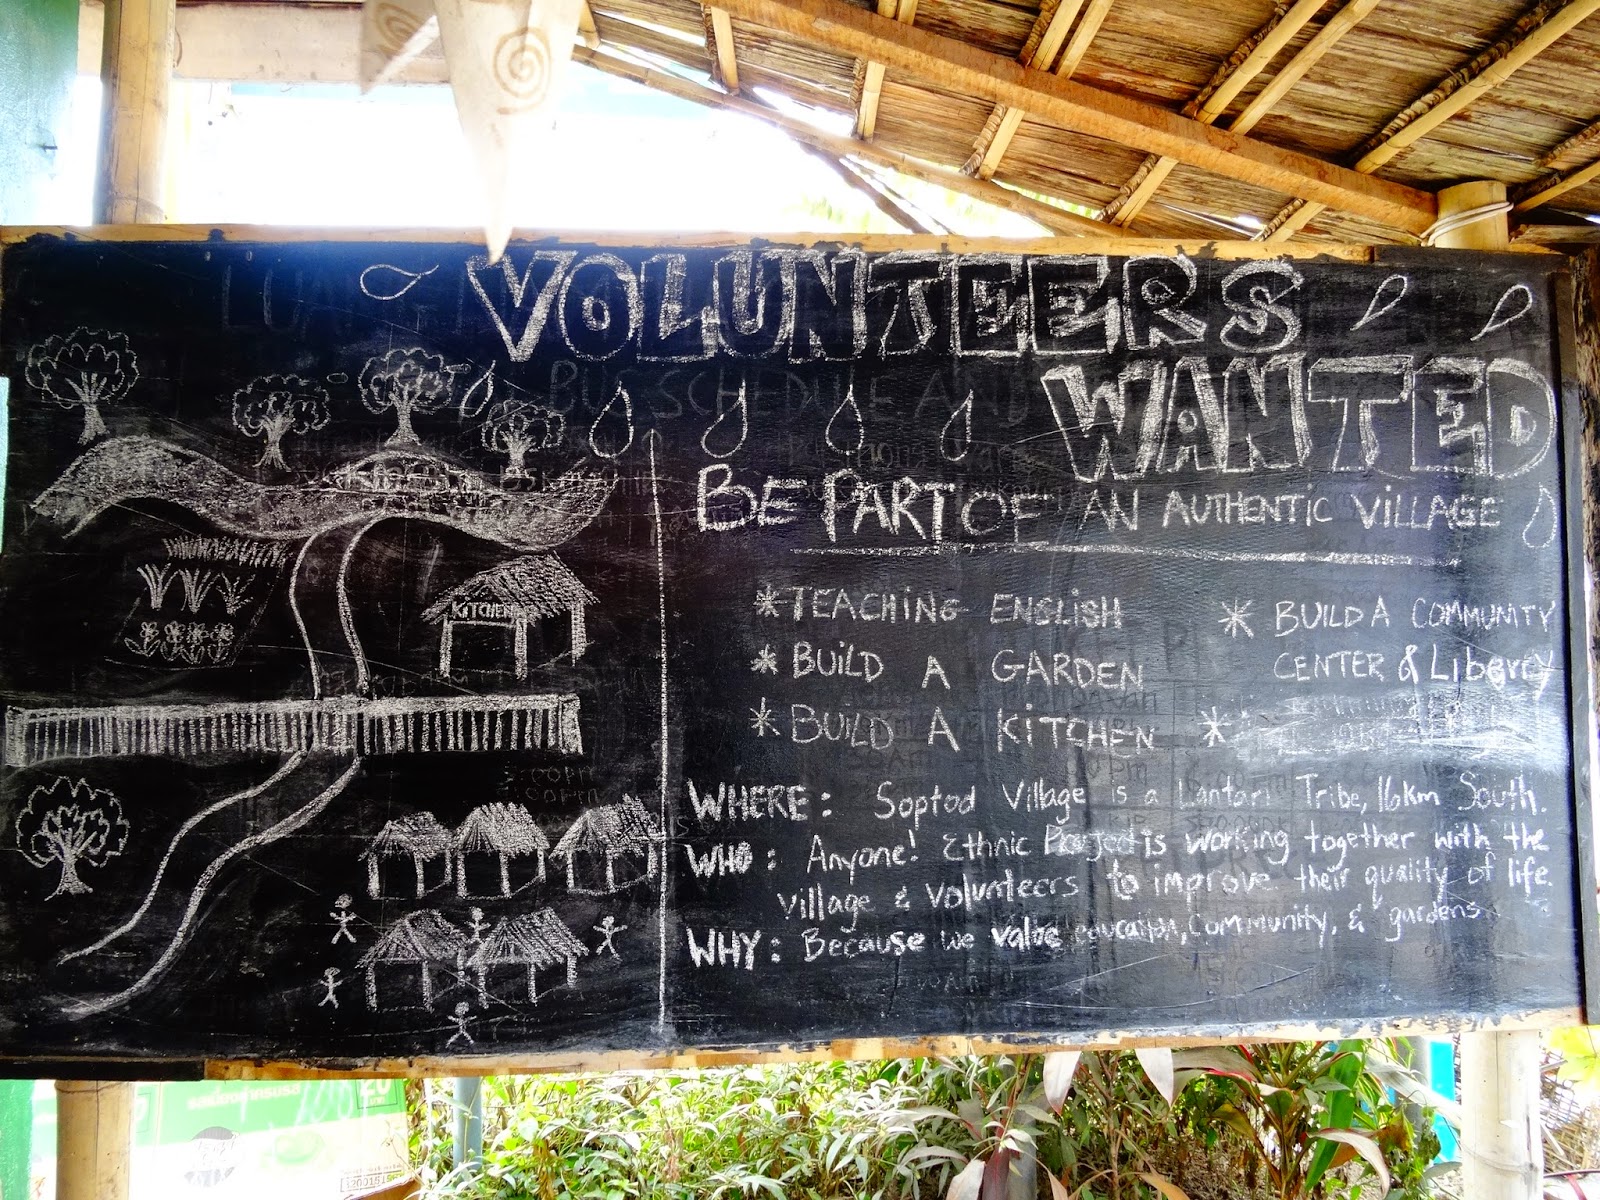 VOLUNTEERS
WANTED
BE PART OF AN AUTHENTIC VILLAGE
* TEACHING ENGLISH
* BUILD A GARDEN
* BUILD A KITCHEN
* BUILD A COMMUNITY
CENTER & Liberry
*
WHERE: Soptod Village is a Lantari Tribe, 16km South.
WHO: Anyone! Ethnic Project is working together with the
village & volunteers to improve their quality of life.
WHY: Because we value education, Community, & gardens
KITCHEN
BUS SCHEDULE AND
20